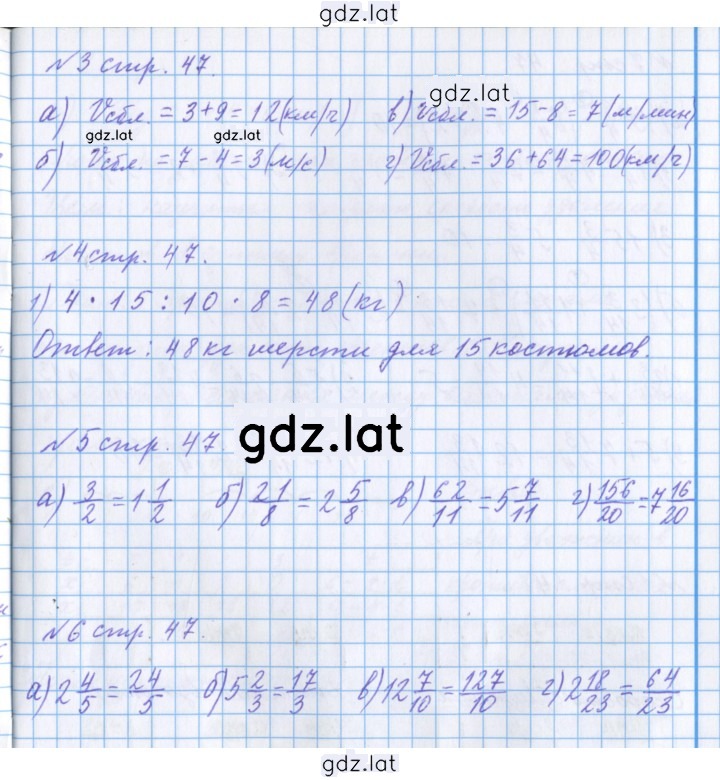 gdz.lat
№3 стр. 47.
а) Vсбл. = 3+9=12(км/ч) в) Vсбл. = 15-8=7(м/мин)
gdz.lat
gdz.lat gdz.lat
б) Vсбл. = 7-4=3(м/с) г) Vсбл. = 36+64=100(км/ч)
№4 стр. 47.
1) 4 · 15 : 10 · 8 = 48(кг)
Ответ: 48 кг шерсти для 15 костюмов.
№5 стр. 47 gdz.lat
а) 3/2 = 1 1/2 б) 21/8 = 2 5/8 в) 62/11 = 5 7/11 г) 156/20 = 7 16/20
№6 стр. 47.
а) 2 4/5 = 24/5 б) 5 2/3 = 17/3 в) 12 7/10 = 127/10 г) 2 18/23 = 64/23
gdz.lat